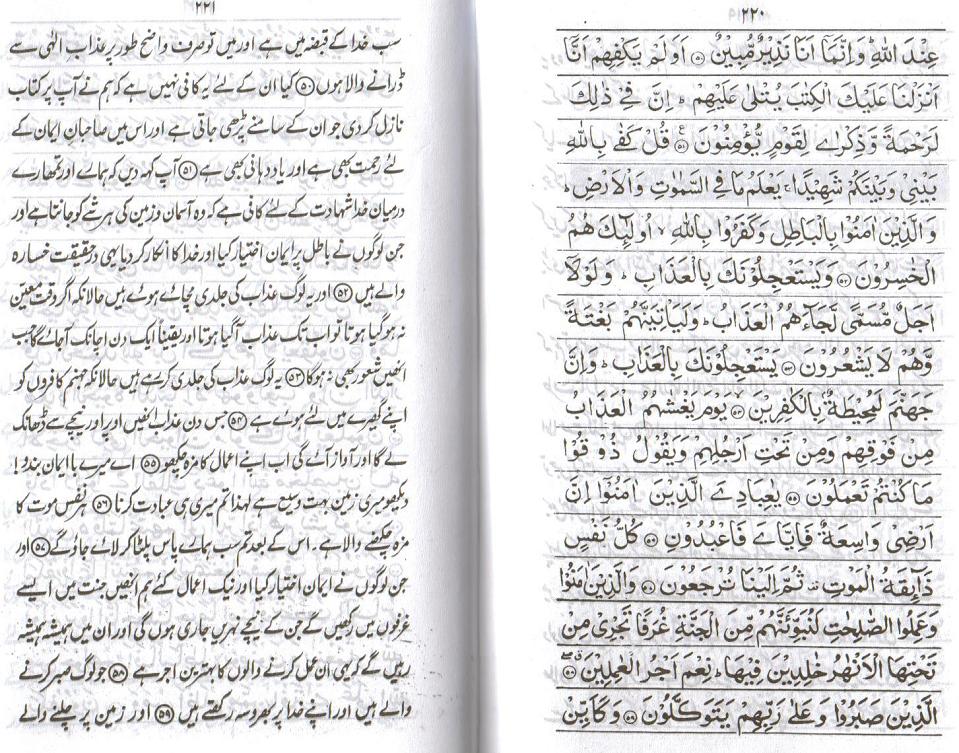 ۲۲۰
عِنْدَ اللّٰهِ وَاِنَّمَآ اَنَا نَذِيْرٌ مُّبِيْنٌ ﴿۵۰﴾ اَوَ لَمْ يَكْفِهِمْ اَنَّآ
اَنْزَلْنَا عَلَيْكَ الْكِتٰبَ يُتْلٰى عَلَيْهِمْ ؕ اِنَّ فِيْ ذٰلِكَ
لَرَحْمَةً وَّذِكْرٰى لِقَوْمٍ يُّؤْمِنُوْنَ ﴿۵۱﴾ قُلْ كَفٰى بِاللّٰهِ
بَيْنِيْ وَبَيْنَكُمْ شَهِيْدًا ۚ يَعْلَمُ مَا فِي السَّمٰوٰتِ وَالْاَرْضِ ؕ
وَالَّذِيْنَ اٰمَنُوْا بِالْبَاطِلِ وَكَفَرُوْا بِاللّٰهِ ۙ اُولٰٓئِكَ هُمُ
الْخٰسِرُوْنَ ﴿۵۲﴾ وَيَسْتَعْجِلُوْنَكَ بِالْعَذَابِ ؕ وَلَوْلَآ
اَجَلٌ مُّسَمًّى لَّجَآءَهُمُ الْعَذَابُ ؕ وَلَيَاْتِيَنَّهُمْ بَغْتَةً
وَّهُمْ لَا يَشْعُرُوْنَ ﴿۵۳﴾ يَسْتَعْجِلُوْنَكَ بِالْعَذَابِ ؕ وَاِنَّ
جَهَنَّمَ لَمُحِيْطَةٌۢ بِالْكٰفِرِيْنَ ﴿۵۴﴾ يَوْمَ يَغْشٰهُمُ الْعَذَابُ
مِنْ فَوْقِهِمْ وَمِنْ تَحْتِ اَرْجُلِهِمْ وَيَقُوْلُ ذُوْقُوْا
مَا كُنْتُمْ تَعْمَلُوْنَ ﴿۵۵﴾ يٰعِبَادِيَ الَّذِيْنَ اٰمَنُوْٓا اِنَّ
اَرْضِيْ وَاسِعَةٌ فَاِيَّايَ فَاعْبُدُوْنِ ﴿۵۶﴾ كُلُّ نَفْسٍ
ذَآئِقَةُ الْمَوْتِ ۟ ثُمَّ اِلَيْنَا تُرْجَعُوْنَ ﴿۵۷﴾ وَالَّذِيْنَ اٰمَنُوْا
وَعَمِلُوا الصّٰلِحٰتِ لَنُبَوِّئَنَّهُمْ مِّنَ الْجَنَّةِ غُرَفًا تَجْرِيْ مِنْ
تَحْتِهَا الْاَنْهٰرُ خٰلِدِيْنَ فِيْهَا ؕ نِعْمَ اَجْرُ الْعٰمِلِيْنَ ﴿۵۸﴾
الَّذِيْنَ صَبَرُوْا وَعَلٰى رَبِّهِمْ يَتَوَكَّلُوْنَ ﴿۵۹﴾ وَكَاَيِّنْ
۲۲۱
سب خدا کے قبضہ میں ہے اور میں تو صرف واضح طور پر عذاب الٰہی سے
ڈرانے والا ہوں ﴿۵۰﴾ کیا ان کے لئے یہ کافی نہیں ہے کہ ہم نے آپ پر کتاب
نازل کر دی جو ان کے سامنے پڑھی جاتی ہے اور اس میں صاحبان ایمان کے
لئے رحمت بھی ہے اور یاد دہانی بھی ہے ﴿۵۱﴾ آپ کہہ دیں کہ ہمارے اور تمھارے
درمیان خدا شہادت کے لئے کافی ہے کہ وہ آسمان و زمین کی ہر شے کو جانتا ہے اور
جن لوگوں نے باطل پر ایمان اختیار کیا اور خدا کا انکار کر دیا یہی درحقیقت خسارہ
والے ہیں ﴿۵۲﴾ اور یہ لوگ عذاب کی جلدی مچائے ہوئے ہیں حالانکہ اگر وقت معین
نہ ہو گیا ہوتا تو اب تک عذاب آ گیا ہوتا اور یقیناً ایک دن اچانک آجائے گا جب
انھیں شعور بھی نہ ہوگا ﴿۵۳﴾ یہ لوگ عذاب کی جلدی کر رہے ہیں حالانکہ جہنم کافروں کو
اپنے گھیرے میں لئے ہوئے ہے ﴿۵۴﴾ جس دن عذاب انھیں اوپر اور نیچے سے ڈھانک
لے گا اور آواز آئے گی اب اپنے اعمال کا مزہ چکھو ﴿۵۵﴾ اے میرے با ایمان بندو!
دیکھو میری زمین بہت وسیع ہے لہٰذا تم میری ہی عبادت کرنا ﴿۵۶﴾ ہر نفس موت کا
مزہ چکھنے والا ہے۔ اس کے بعد تم سب ہمارے پاس پلٹا کر لائے جاؤ گے ﴿۵۷﴾ اور
جن لوگوں نے ایمان اختیار کیا اور نیک اعمال کئے ہم انھیں جنت میں ایسے
غرفوں میں رکھیں گے جن کے نیچے نہریں جاری ہوں گی اور ان میں ہمیشہ ہمیشہ
رہیں گے کہ یہی ان عمل کرنے والوں کا بہترین اجر ہے ﴿۵۸﴾ جو لوگ صبر کرنے
والے ہیں اور اپنے خدا پر بھروسہ رکھتے ہیں ﴿۵۹﴾ اور زمین پر چلنے والے